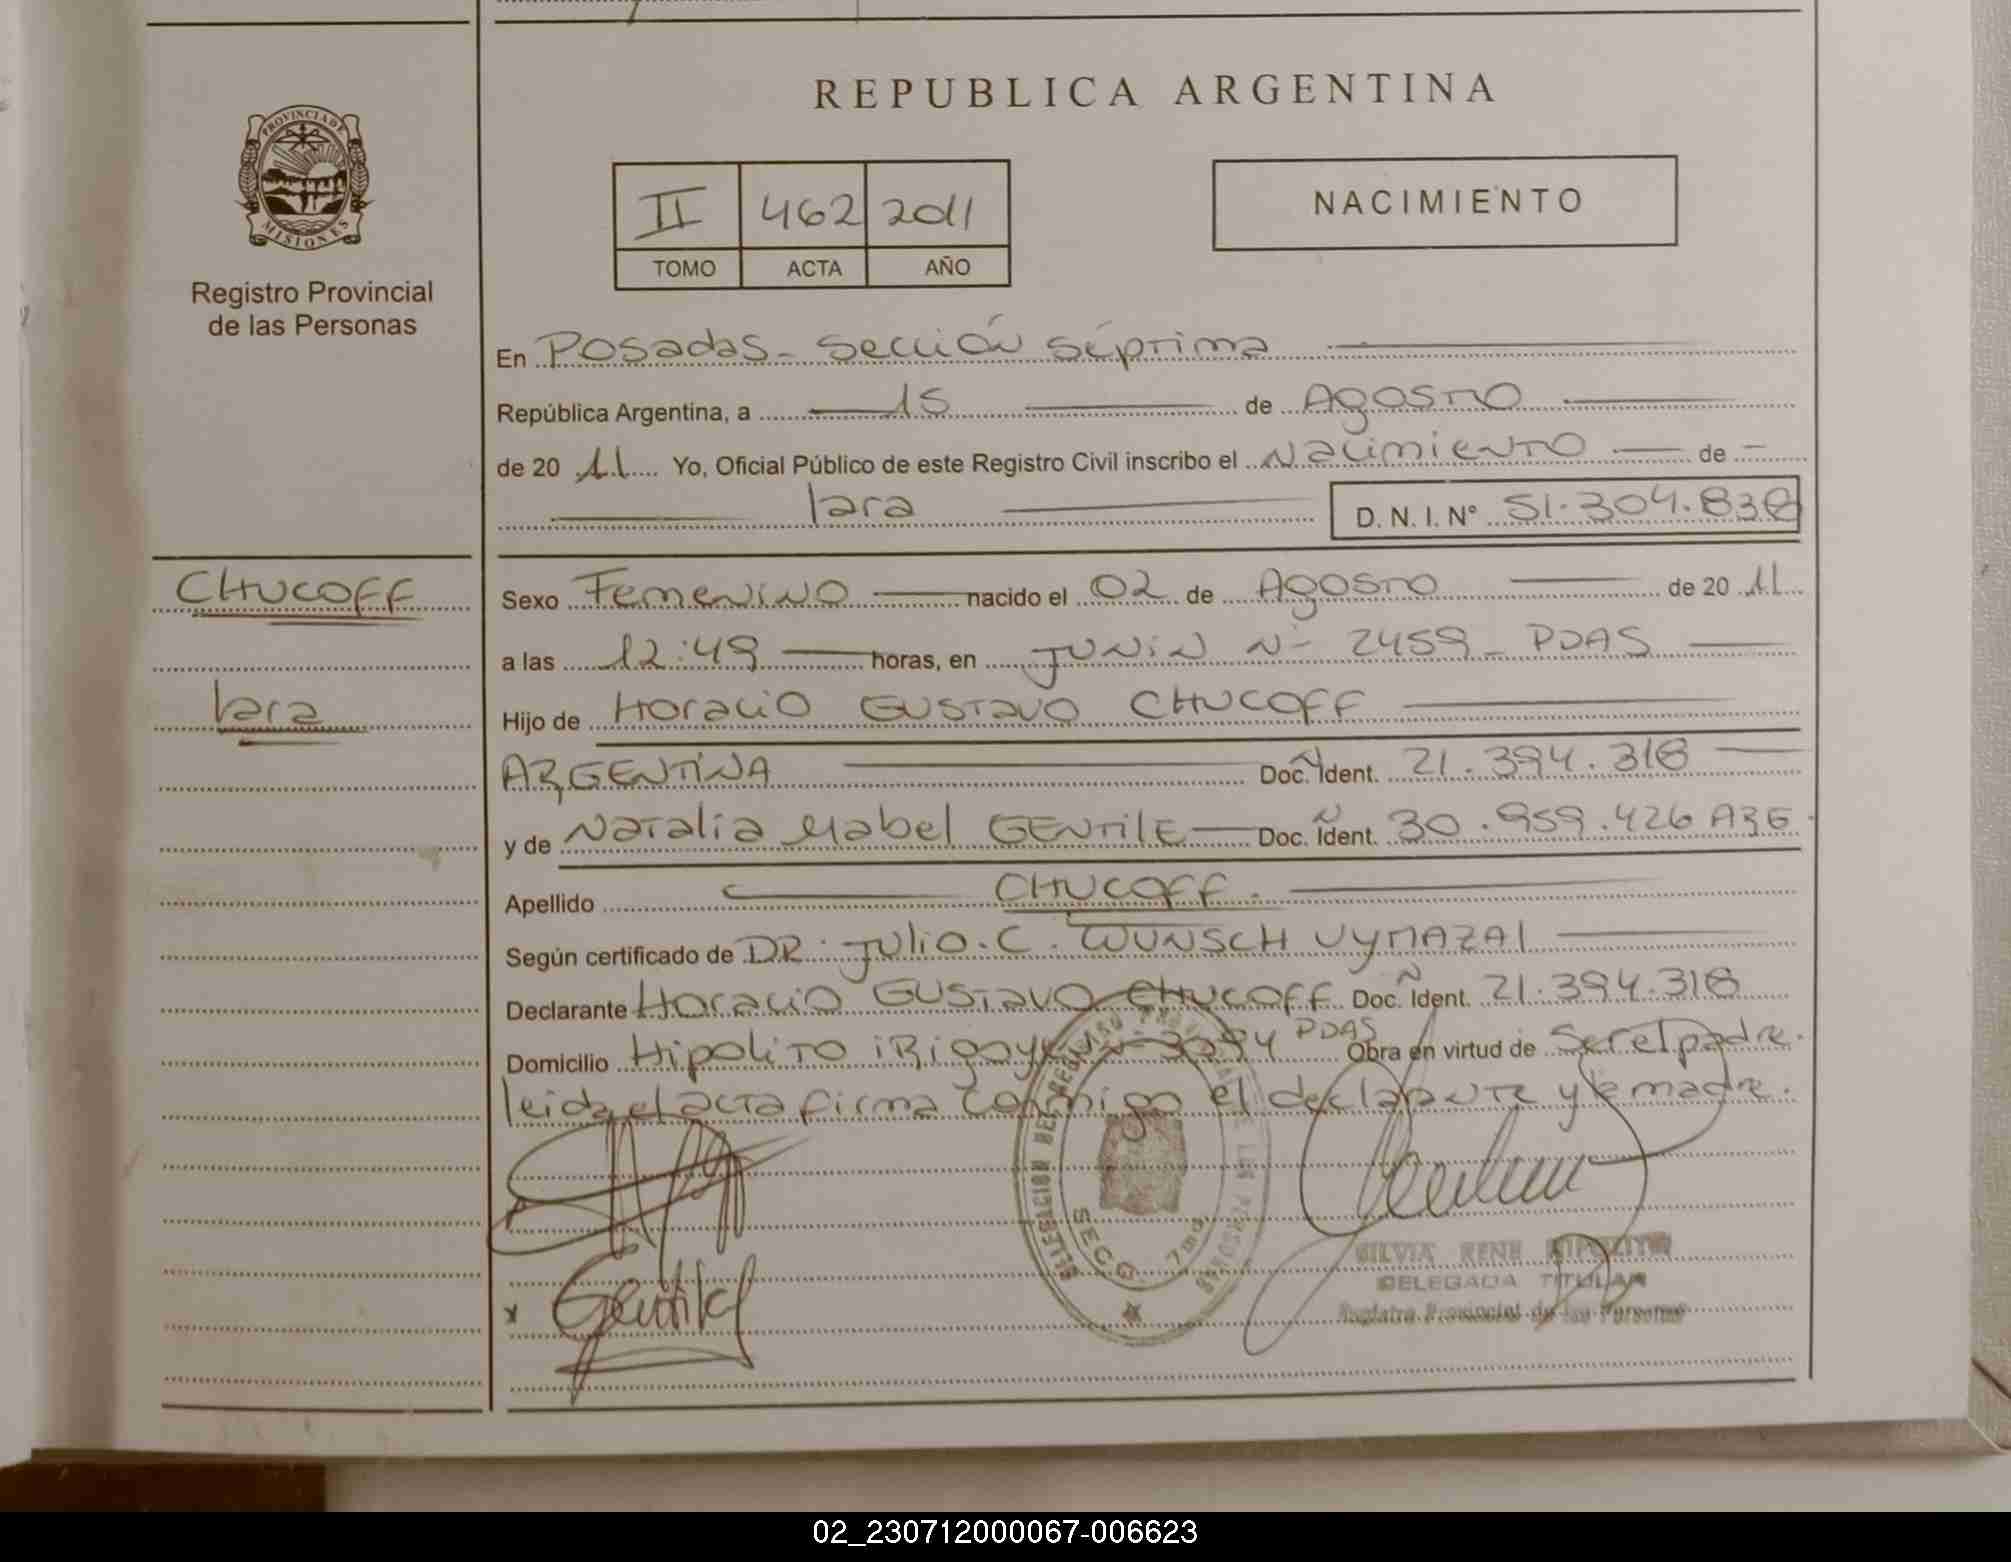 REPUBLICA ARGENTINA
PROVINCIA DE
MISIONES
Registro Provincial
de las Personas
II 462 2011
TOMO ACTA AÑO
NACIMIENTO
En Posadas - Sección Séptima
República Argentina, a 15 de Agosto
de 20 11 Yo, Oficial Público de este Registro Civil inscribo el Nacimiento de
Iara D. N. I. N° 51.304.838
CHUCOFF
Iara
Sexo Femenino nacido el 02 de Agosto de 20 11
a las 12:49 horas, en Junin N- 2459 - PDAS
Hijo de Horacio Gustavo CHUCOFF
ARGENTINA Doc. Ident. 21.394.318
y de Natalia Mabel GENTILE Doc. Ident. 30.959.426 ARG
Apellido CHUCOFF.
Según certificado de DR. Julio. C. WUNSCH VYMAZAl
Declarante Horacio Gustavo CHUCOFF Doc. Ident. 21.394.318
Domicilio Hipolito irigoyen PDAS Obra en virtud de Ser el padre.
leida el acta firma conmigo el declarante y la madre.
DELEGACION DEL REGISTRO PROVINCIAL DE LAS PERSONAS
SECC. 7ma
Gentile
SILVIA RENE HIPOLITO
DELEGADA TITULAR
Registro Provincial de las Personas
02_230712000067-006623